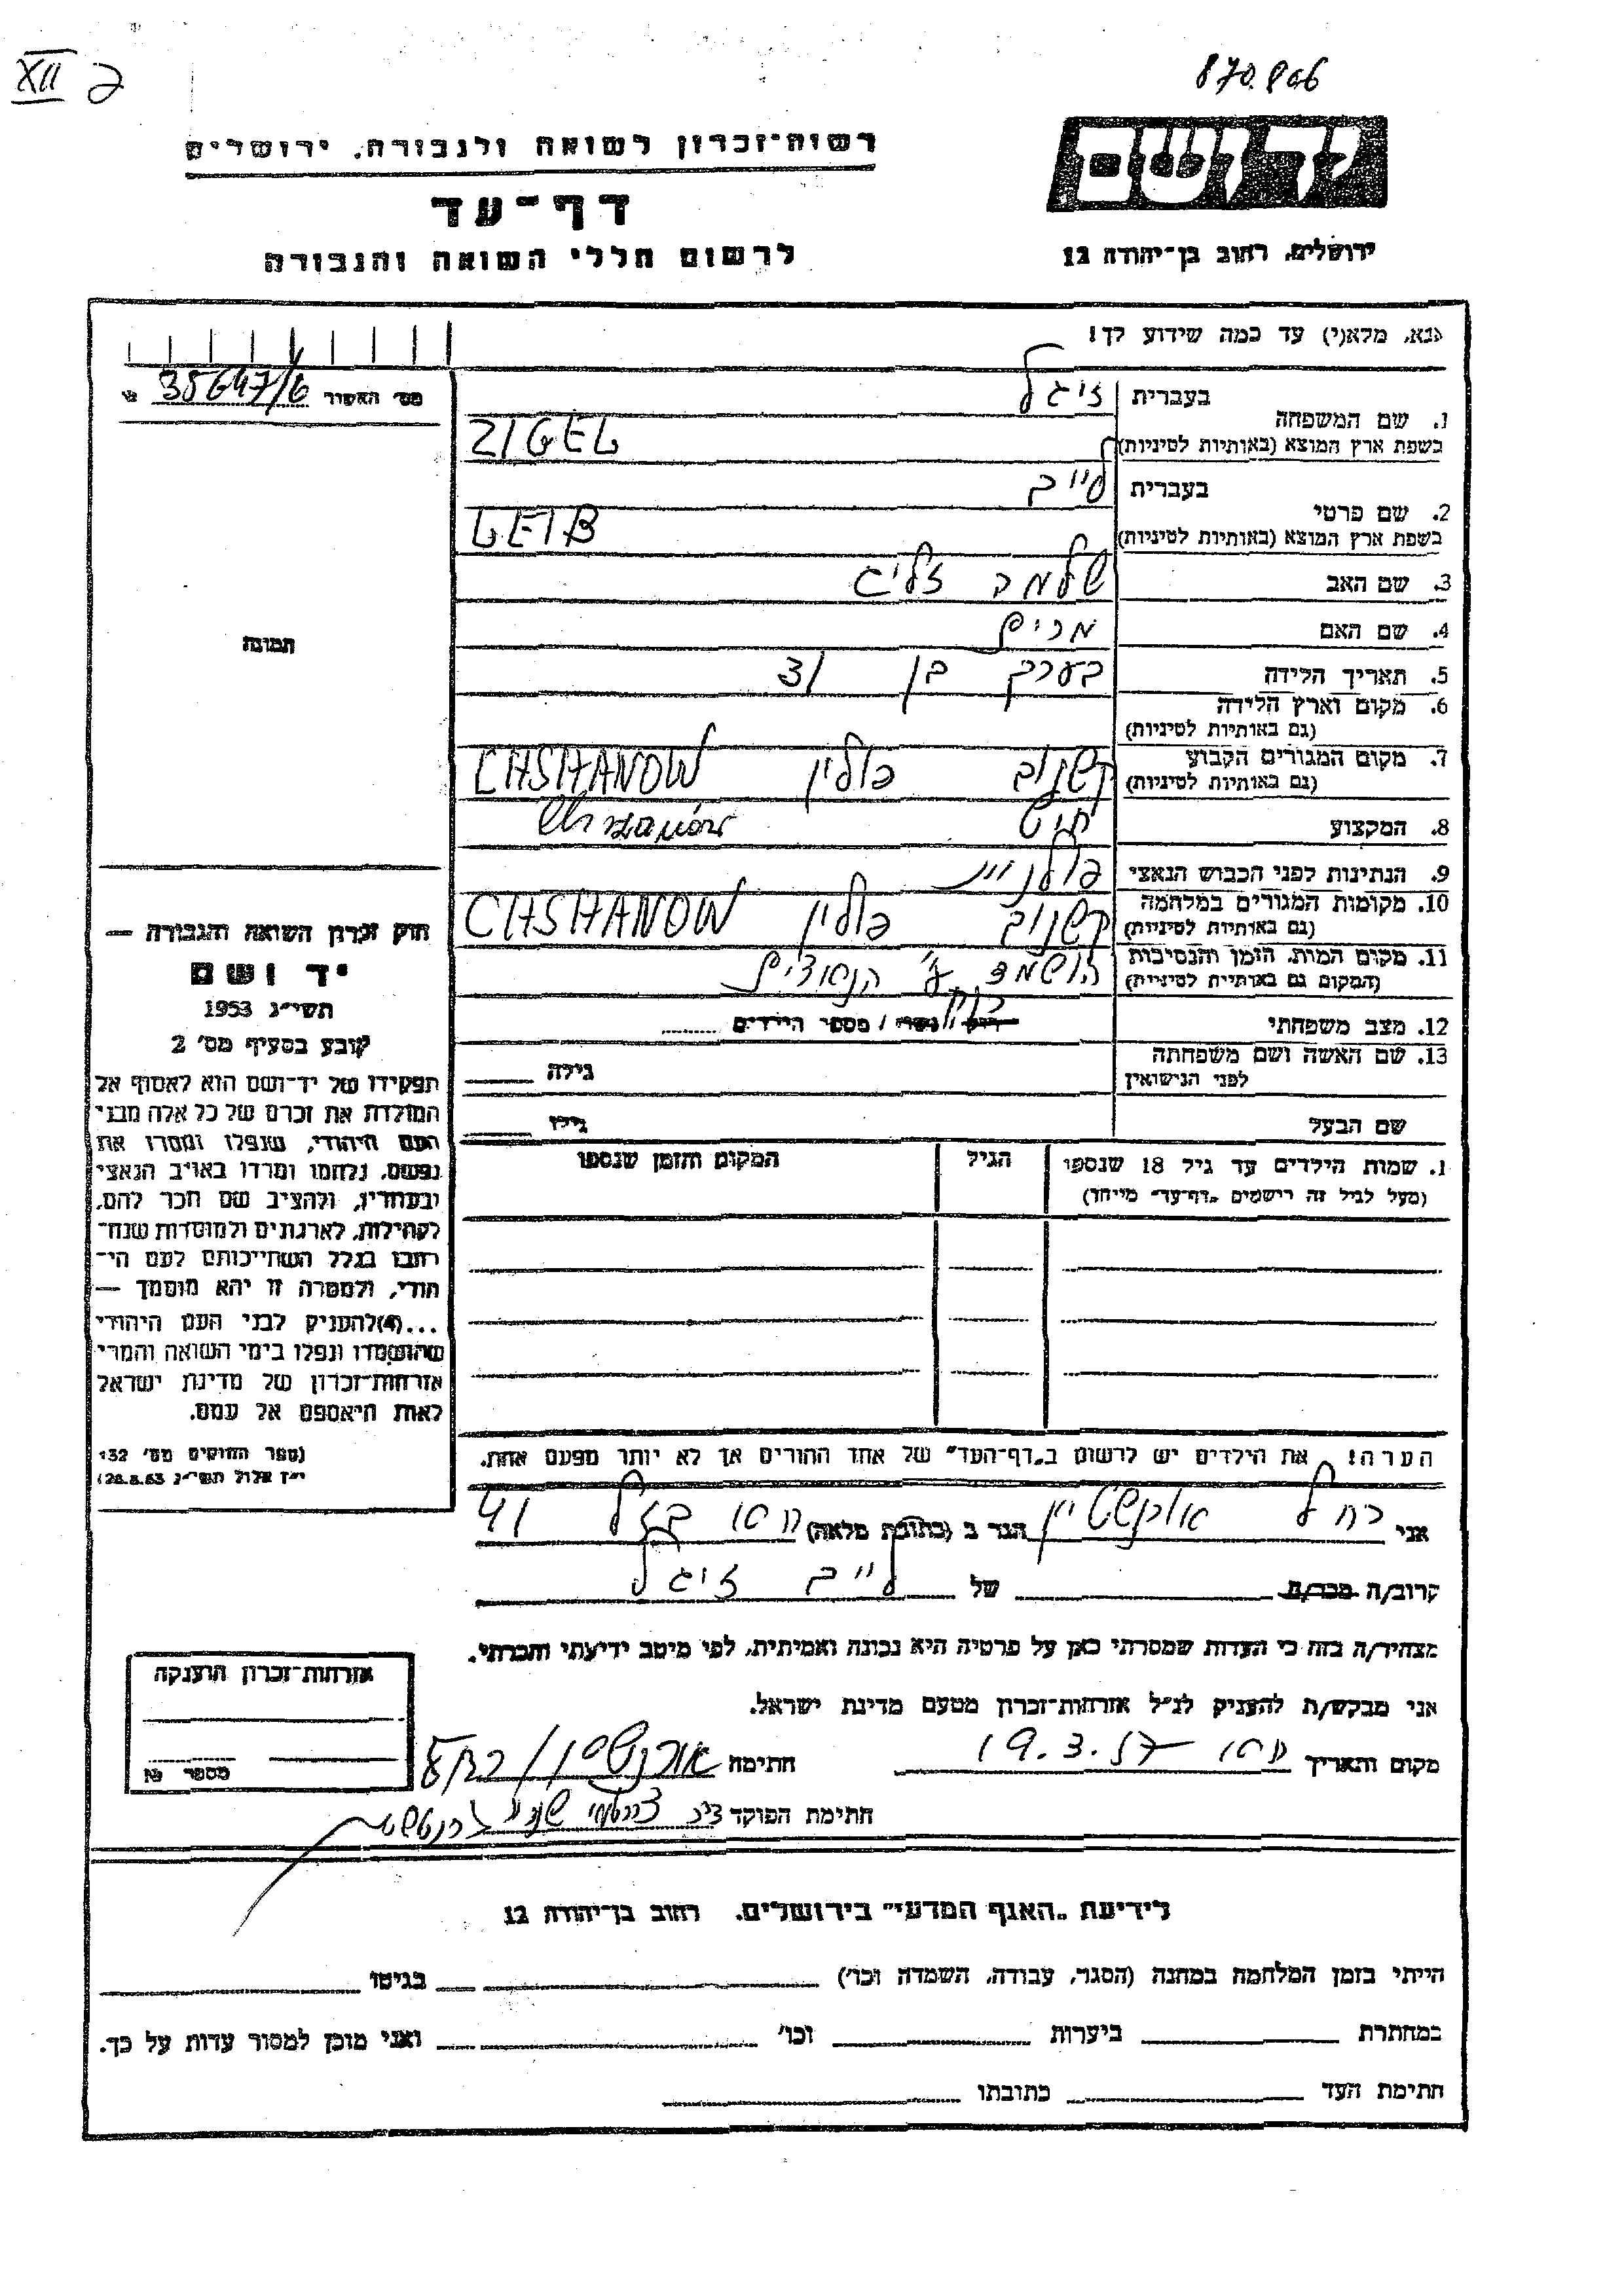 XII ב
870.806
יד ושם
רשות-זכרון לשואה ולגבורה, ירושלים
דף-עד
לרשום חללי השואה והגבורה
ירושלים, רחוב בן-יהודה 12
נא, מלא(י) עד כמה שידוע לך!
מס' האשור 35647/6 №
1. שם המשפחה
בעברית זיגל
בשפת ארץ המוצא (באותיות לטיניות) ZIGEL
2. שם פרטי
בעברית לייב
בשפת ארץ המוצא (באותיות לטיניות) LEIB
3. שם האב שלמה זליג
4. שם האם מרים
5. תאריך הלידה בערך בן 31
6. מקום וארץ הלידה
(גם באותיות לטיניות)
7. מקום המגורים הקבוע קשנוב פולין CHSHANOW
(גם באותיות לטיניות)
8. המקצוע חייט Chrzanów
9. הנתינות לפני הכבוש הנאצי פולנית
10. מקומות המגורים במלחמה קשנוב פולין CHSHANOW
(גם באותיות לטיניות)
11. מקום המות, הזמן והנסיבות הושמד ע"י הנאצים
(המקום גם באותיות לטיניות)
12. מצב משפחתי רווק / נשוי / מספר הילדים
13. שם האשה ושם משפחתה
לפני הנישואין
גילה
שם הבעל
גילו
1. שמות הילדים עד גיל 18 שנספו
(מעל לגיל זה רישמים "דף-עד" מייחד)
הגיל
המקום והזמן שנספו
תמונה
חוק זכרון השואה והגבורה —
יד ושם
תשי"ג 1953
קובע בסעיף מס' 2
תפקידו של יד-ושם הוא לאסוף אל
המולדת את זכרם של כל אלה מבני
העם היהודי, שנפלו ומסרו את
נפשם, נלחמו ומרדו באויב הנאצי
ובעוזריו, ולהציב שם וזכר להם,
לקהילות, לארגונים ולמוסדות שנח-
רבו בגלל השתייכותם לעם הי-
הודי, ולמטרה זו יהא מוסמך —
...(4) להעניק לבני העם היהודי
שהושמדו ונפלו בימי השואה והמרי
אזרחות-זכרון של מדינת ישראל
לאות היאספם אל עמם.
(ספר החוקים מס' 132
י"ז אלול תשי"ג 28.8.53)
הערה! את הילדים יש לרשום ב"דף-העד" של אחד ההורים אך לא יותר מפעם אחת.
אני רחל הגר ב (כתובת מלאה) 41
קרוב/ה מכר/ה של לייב זיגל
מצהיר/ה בזה כי העדות שמסרתי כאן על פרטיה היא נכונה ואמיתית, לפי מיטב ידיעתי והכרתי.
אני מבקש/ת להעניק לנ"ל אזרחות-זכרון מטעם מדינת ישראל.
מקום ותאריך 19.3.57 חתימה
חתימת הפוקד
אזרחות-זכרון הוענקה
מספר №
לידיעת "האגף המדעי" בירושלים, רחוב בן-יהודה 12
הייתי בזמן המלחמה במחנה (הסגר, עבודה, השמדה וכו') בגיטו
במחתרת ביערות וכו' ואני מוכן למסור עדות על כך.
חתימת העד כתובתו